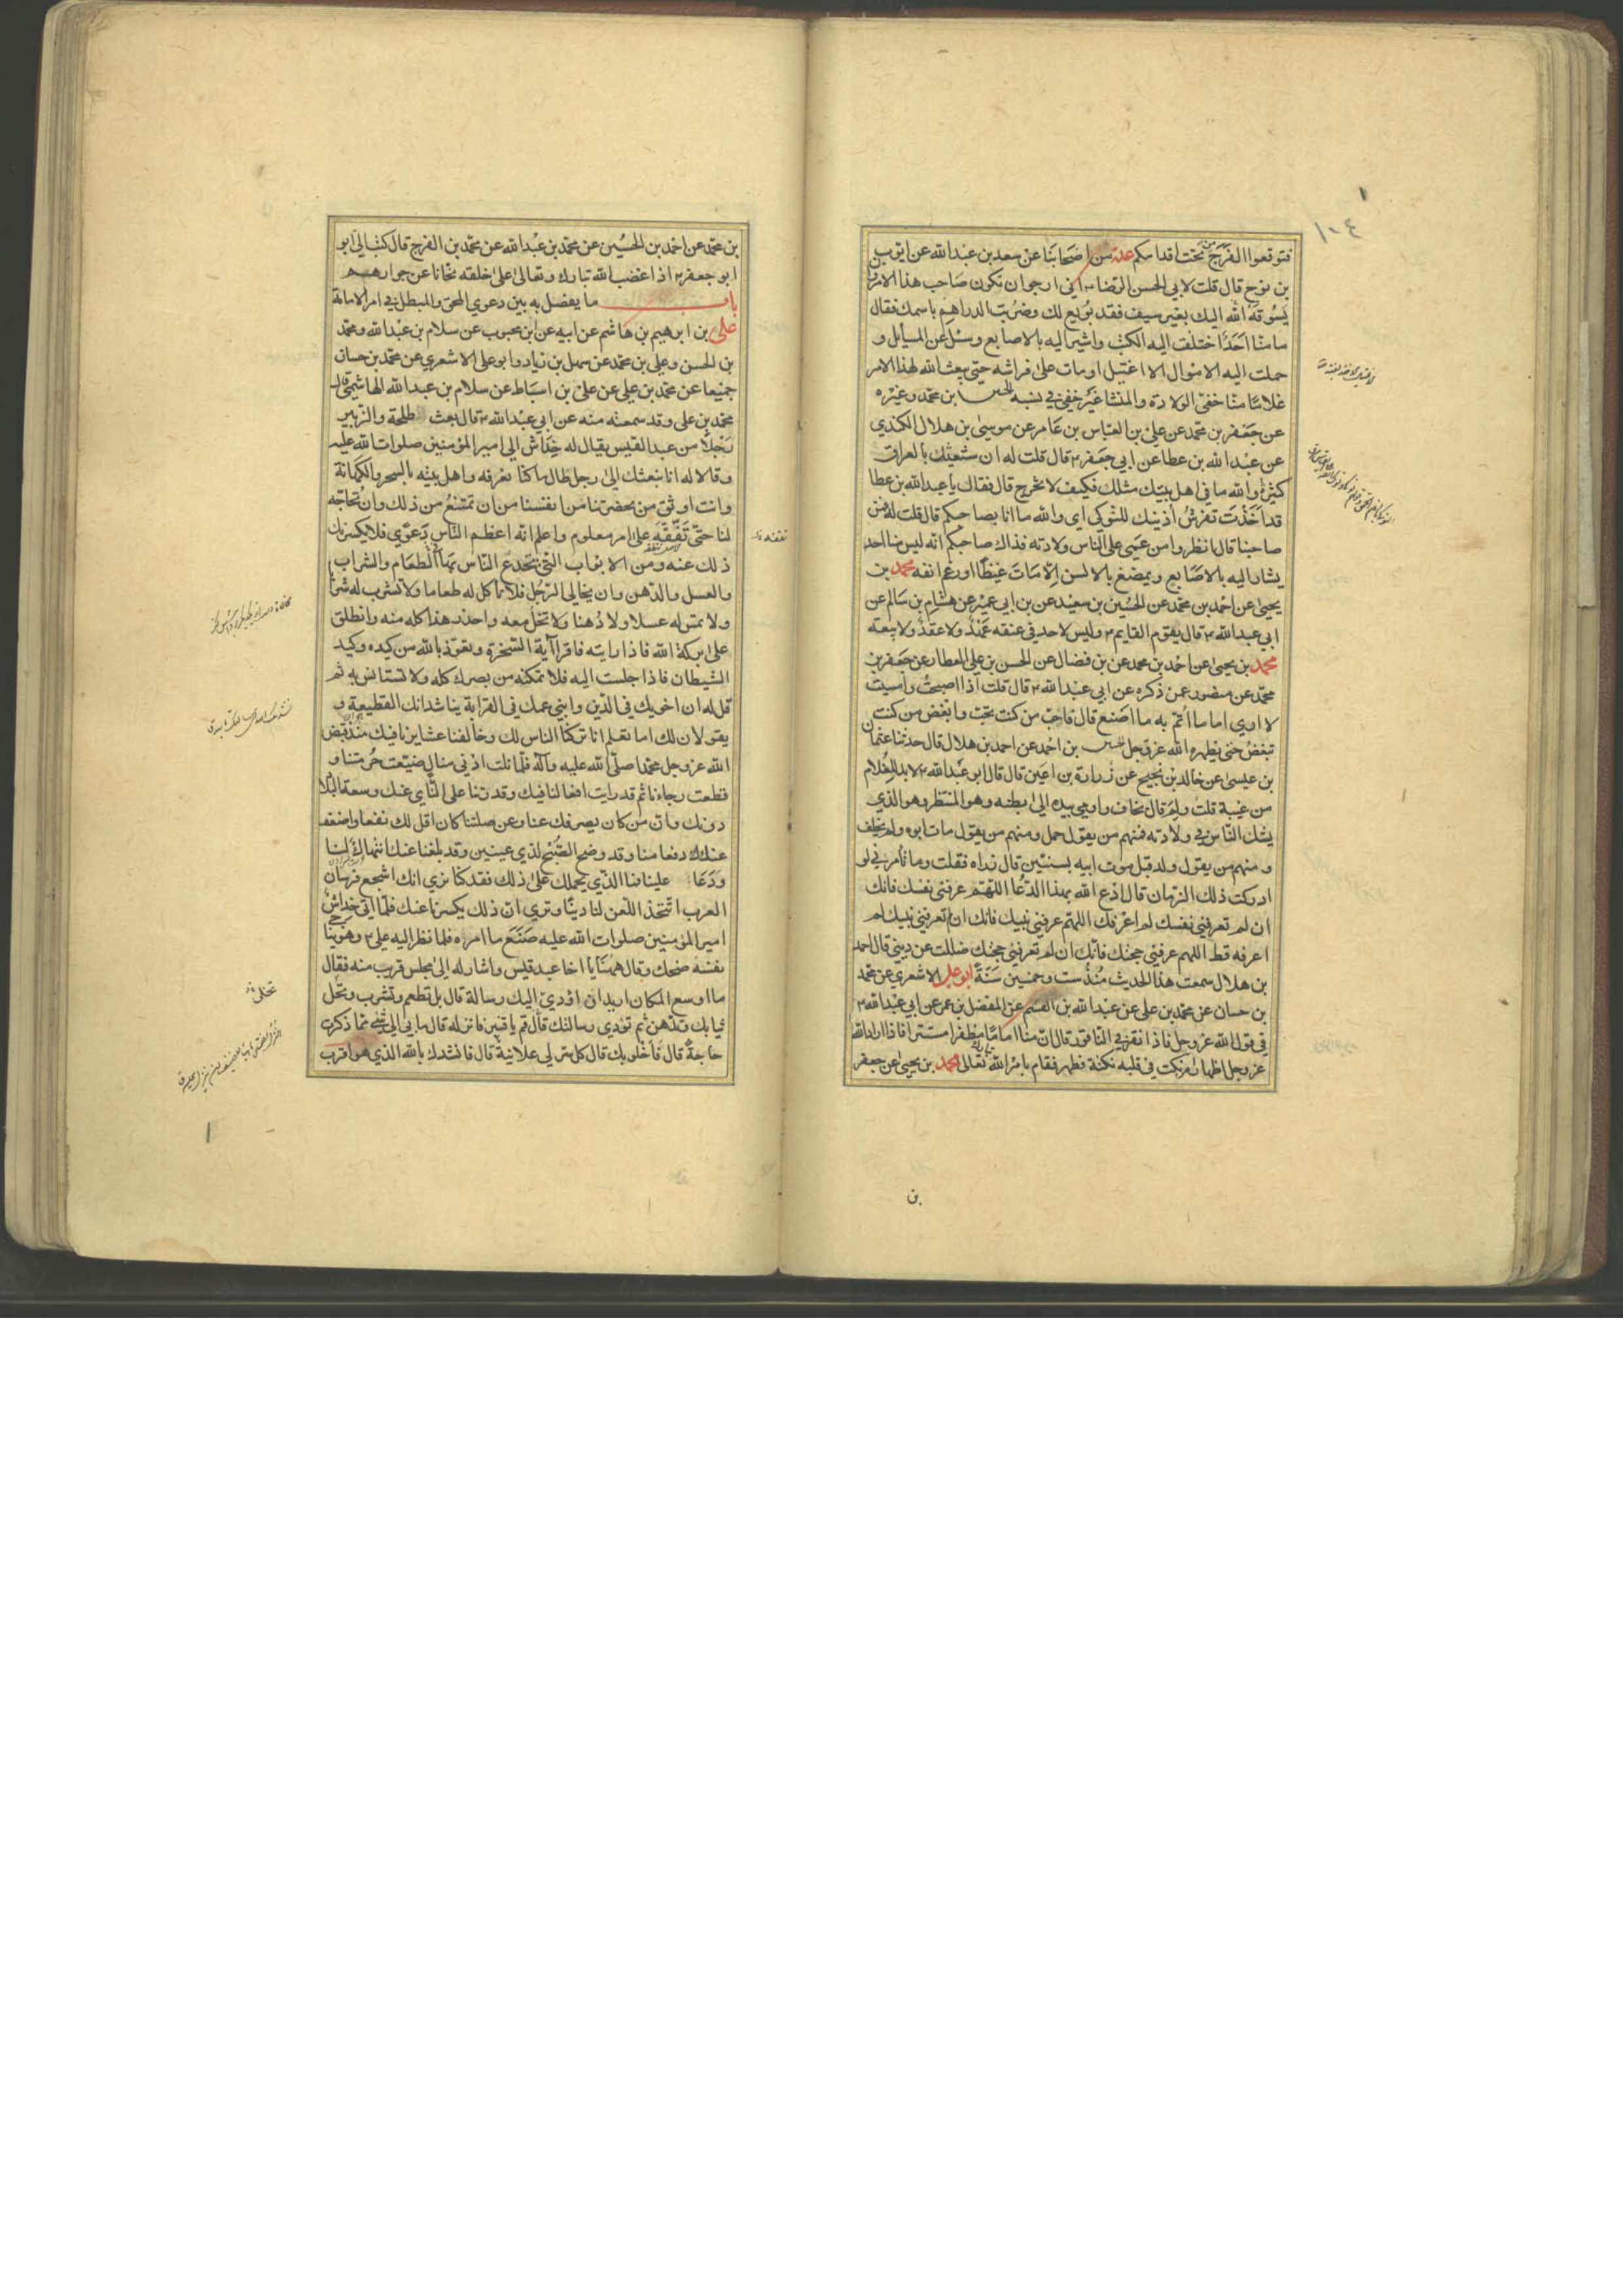 ١٠٤
فتوقعوا الفرج من تحت اقدامكم عدة من اصحابنا عن سعد بن عبد الله عن ايوب
بن نوح قال قلت لابي الحسن الرضا ۴ اني ارجو ان تكون صاحب هذا الامر وان
يسوقه الله اليك بغير سيف فقد بويع لك وضربت الدراهم باسمك فقال
ما منا احدا اختلفت اليه الكتب واشير اليه بالاصابع وسئل عن المسايل و
حملت اليه الاموال الا اغتيل او مات على فراشه حتى يبعث الله لهذا الامر
غلاما منا خفي الولادة والمنشا غير خفي في نسبه الحسين بن محمد وغيره
عن جعفر بن محمد عن علي بن العباس بن عامر عن موسى بن هلال الكندي
عن عبد الله بن عطا عن ابي جعفر ۴ قال قلت له ان شيعتك بالعراق
كثيرة والله ما في اهل بيتك مثلك فكيف لا تخرج قال فقال يا عبد الله بن عطا
قد اخذت تفرش اذنيك للنوكى اي والله ما انا بصاحبكم قال قلت له فمن
صاحبنا قال انظروا من عمي على الناس ولادته فذاك صاحبكم انه ليس منا احد
يشار اليه بالاصابع ويمضغ بالالسن الا مات غيظا او رغم انفه محمد بن
يحيى عن احمد بن محمد عن الحسين بن سعيد عن بن ابي عمير عن هشام بن سالم عن
ابي عبد الله ۴ قال يقوم القايم ۴ وليس لاحد في عنقه عهد ولا عقد ولا بيعة
محمد بن يحيى عن احمد بن محمد عن بن فضال عن الحسن بن علي العطار عن جعفر بن
محمد عن منصور عمن ذكره عن ابي عبد الله ۴ قال قلت اذا اصبحت وامسيت
لا ارى اماما أئتم به ما اصنع قال فاحب من كنت تحب وابغض من كنت
تبغض حتى يظهره الله عز وجل الحسين بن احمد عن احمد بن هلال قال حدثنا عثمان
بن عيسى عن خالد بن نجيح عن زرارة بن اعين قال قال ابو عبد الله ۴ لا بد للغلام
من غيبة قلت ولم قال يخاف واومى بيده الى بطنه وهو المنتظر وهو الذي
يشك الناس في ولادته فمنهم من يقول حمل ومنهم من يقول مات ابوه ولم يخلف
ومنهم من يقول ولد قبل موت ابيه بسنتين قال زراه فقلت وما تأمرني لو
ادركت ذلك الزمان قال ادع الله بهذا الدعا اللهم عرفني نفسك فانك
ان لم تعرفني نفسك لم اعرفك اللهم عرفني نبيك فانك ان لم تعرفني نبيك لم
اعرفه قط اللهم عرفني حجتك فانك ان لم تعرفني حجتك ضللت عن ديني قال احمد
بن هلال سمعت هذا الحديث منذ ست وخمسين سنة ابو علي الاشعري عن محمد
بن حسان عن محمد بن علي عن عبد الله بن القسم عن المفضل بن عمر عن ابي عبد الله ۴
في قول الله عز وجل فاذا انقر في الناقور قال ان منا اماما مظفرا مستترا فاذا اراد الله
عز وجل اظهار امره نكت في قلبه نكتة فظهر فقام بامر الله تعالى محمد بن يحيى عن جعفر
بن
بن محمد عن احمد بن الحسين عن محمد بن عبد الله عن محمد بن الفرج قال كتب الي ابو
ابو جعفر ۴ اذا غضب الله تبارك وتعالى على خلقه نحانا عن جوارهم
باب ما يفصل به بين دعوى المحق والمبطل في امر الامامة
علي بن ابرهيم بن هاشم عن ابيه عن ابن محبوب عن سلام بن عبد الله ومحمد
بن الحسن وعلي بن محمد عن سهل بن زياد وابو علي الاشعري عن محمد بن حسان
جميعا عن محمد بن علي عن علي بن اسباط عن سلام بن عبد الله الهاشمي قال
محمد بن علي وقد سمعته منه عن ابي عبد الله ۴ قال بعث طلحة والزبير
رجلا من عبد القيس يقال له خداش الى امير المؤمنين صلوات الله عليه
وقالا له انا نبعثك الى رجل طال ما كنا نعرفه واهل بيته بالسحر والكهانة
وانت اوثق من بحضرتنا من انفسنا من ان تمتنع من ذلك وان تحاجه
لنا حتى تفقه على امر معلوم واعلم انه اعظم الناس دعوى فلا يكسرنك
ذلك عنه ومن الابواب التي يخدع الناس بها الطعام والشراب
والعسل والدهن وان يخالي الرجل فلا تأكل له طعاما ولا تشرب له شرابا
ولا تمس له عسلا ولا دهنا ولا تخل معه واحذر هذا كله منه وانطلق
على بركة الله فاذا رايته فاقرا آية السخرة وتعوذ بالله من كيده وكيد
الشيطان فاذا جلست اليه فلا تمكنه من بصرك كله ولا تستانس به ثم
قل له ان اخويك في الدين وابني عمك في القرابة يناشدانك القطيعة و
يقولان لك اما تعلم انا تركنا الناس لك وخالفنا عشايرنا فيك منذ قبض
الله عز وجل محمدا صلى الله عليه وآله فلما نلت ادنى منال ضيعت حرمتنا و
قطعت رجاءنا ثم قد رايت افعالنا فيك وقدرتنا على النأي عنك وسعة البلاد
دونك وان من كان يصرفك عنا وعن صلتنا كان اقل لك نفعا واضعف
عنك دفعا منا وقد وضح الصبح لذي عينين وقد بلغنا عنك انتهاك لنا
ودعا علينا فما الذي يحملك على ذلك فقد كنا نرى انك اشجع فرسان
العرب اتتخذ اللعن لنا دينا وترى ان ذلك يكسرنا عنك فلما اتى خداش
امير المؤمنين صلوات الله عليه صنع ما امراه فلما نظر اليه علي ۴ وهو يناجي
نفسه ضحك وقال ههنا يا اخا عبد قيس واشار له الى مجلس قريب منه فقال
ما اوسع المكان اريد ان اؤدي اليك رسالة قال بل تطعم وتشرب وتحل
ثيابك وتدهن ثم تؤدي رسالتك قال قم يا قنبر فانزله قال ما بي الى شئ مما ذكرت
حاجة قال فاخلو بك قال كل سر لي علانية قال فانشدك بالله الذي هو اقرب